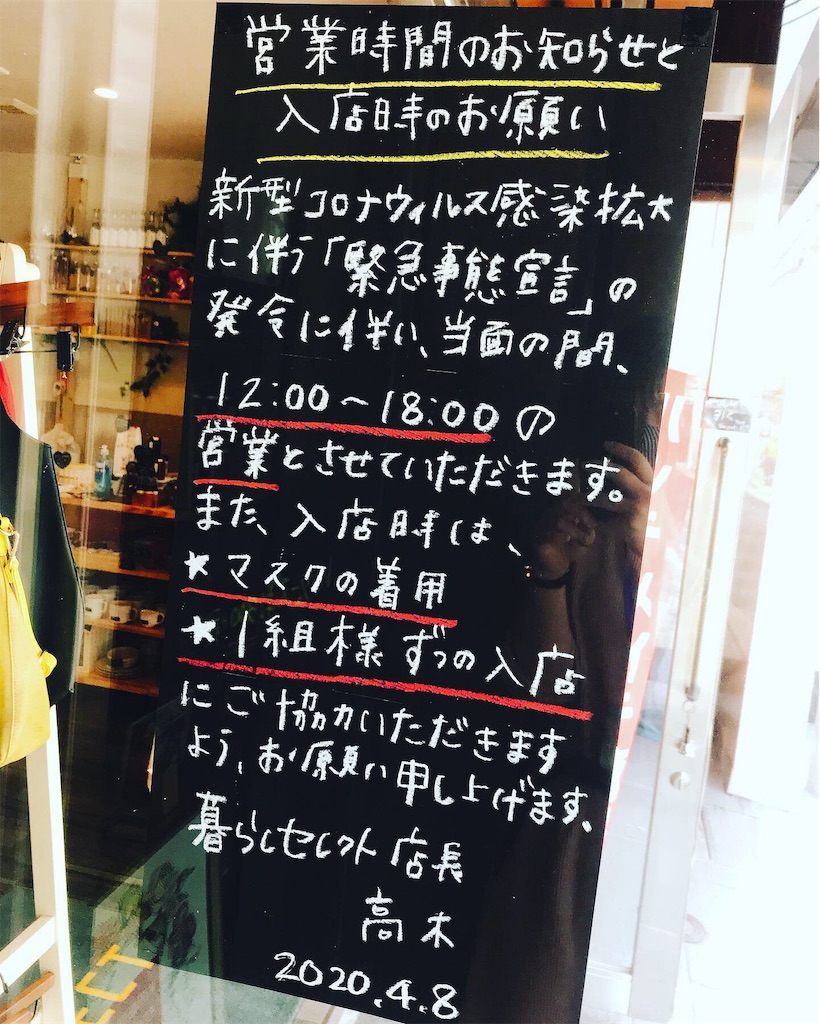 営業時間のお知らせと
入店時のお願い
新型コロナウィルス感染拡大
に伴う「緊急事態宣言」の
発令に伴い、当面の間、
12:00〜18:00の
営業とさせていただきます。
また、入店時は、
★マスクの着用
★1組様ずつの入店
にご協力いただきます
よう、お願い申し上げます。
暮らしセレクト店長
高木
2020.4.8
ECT